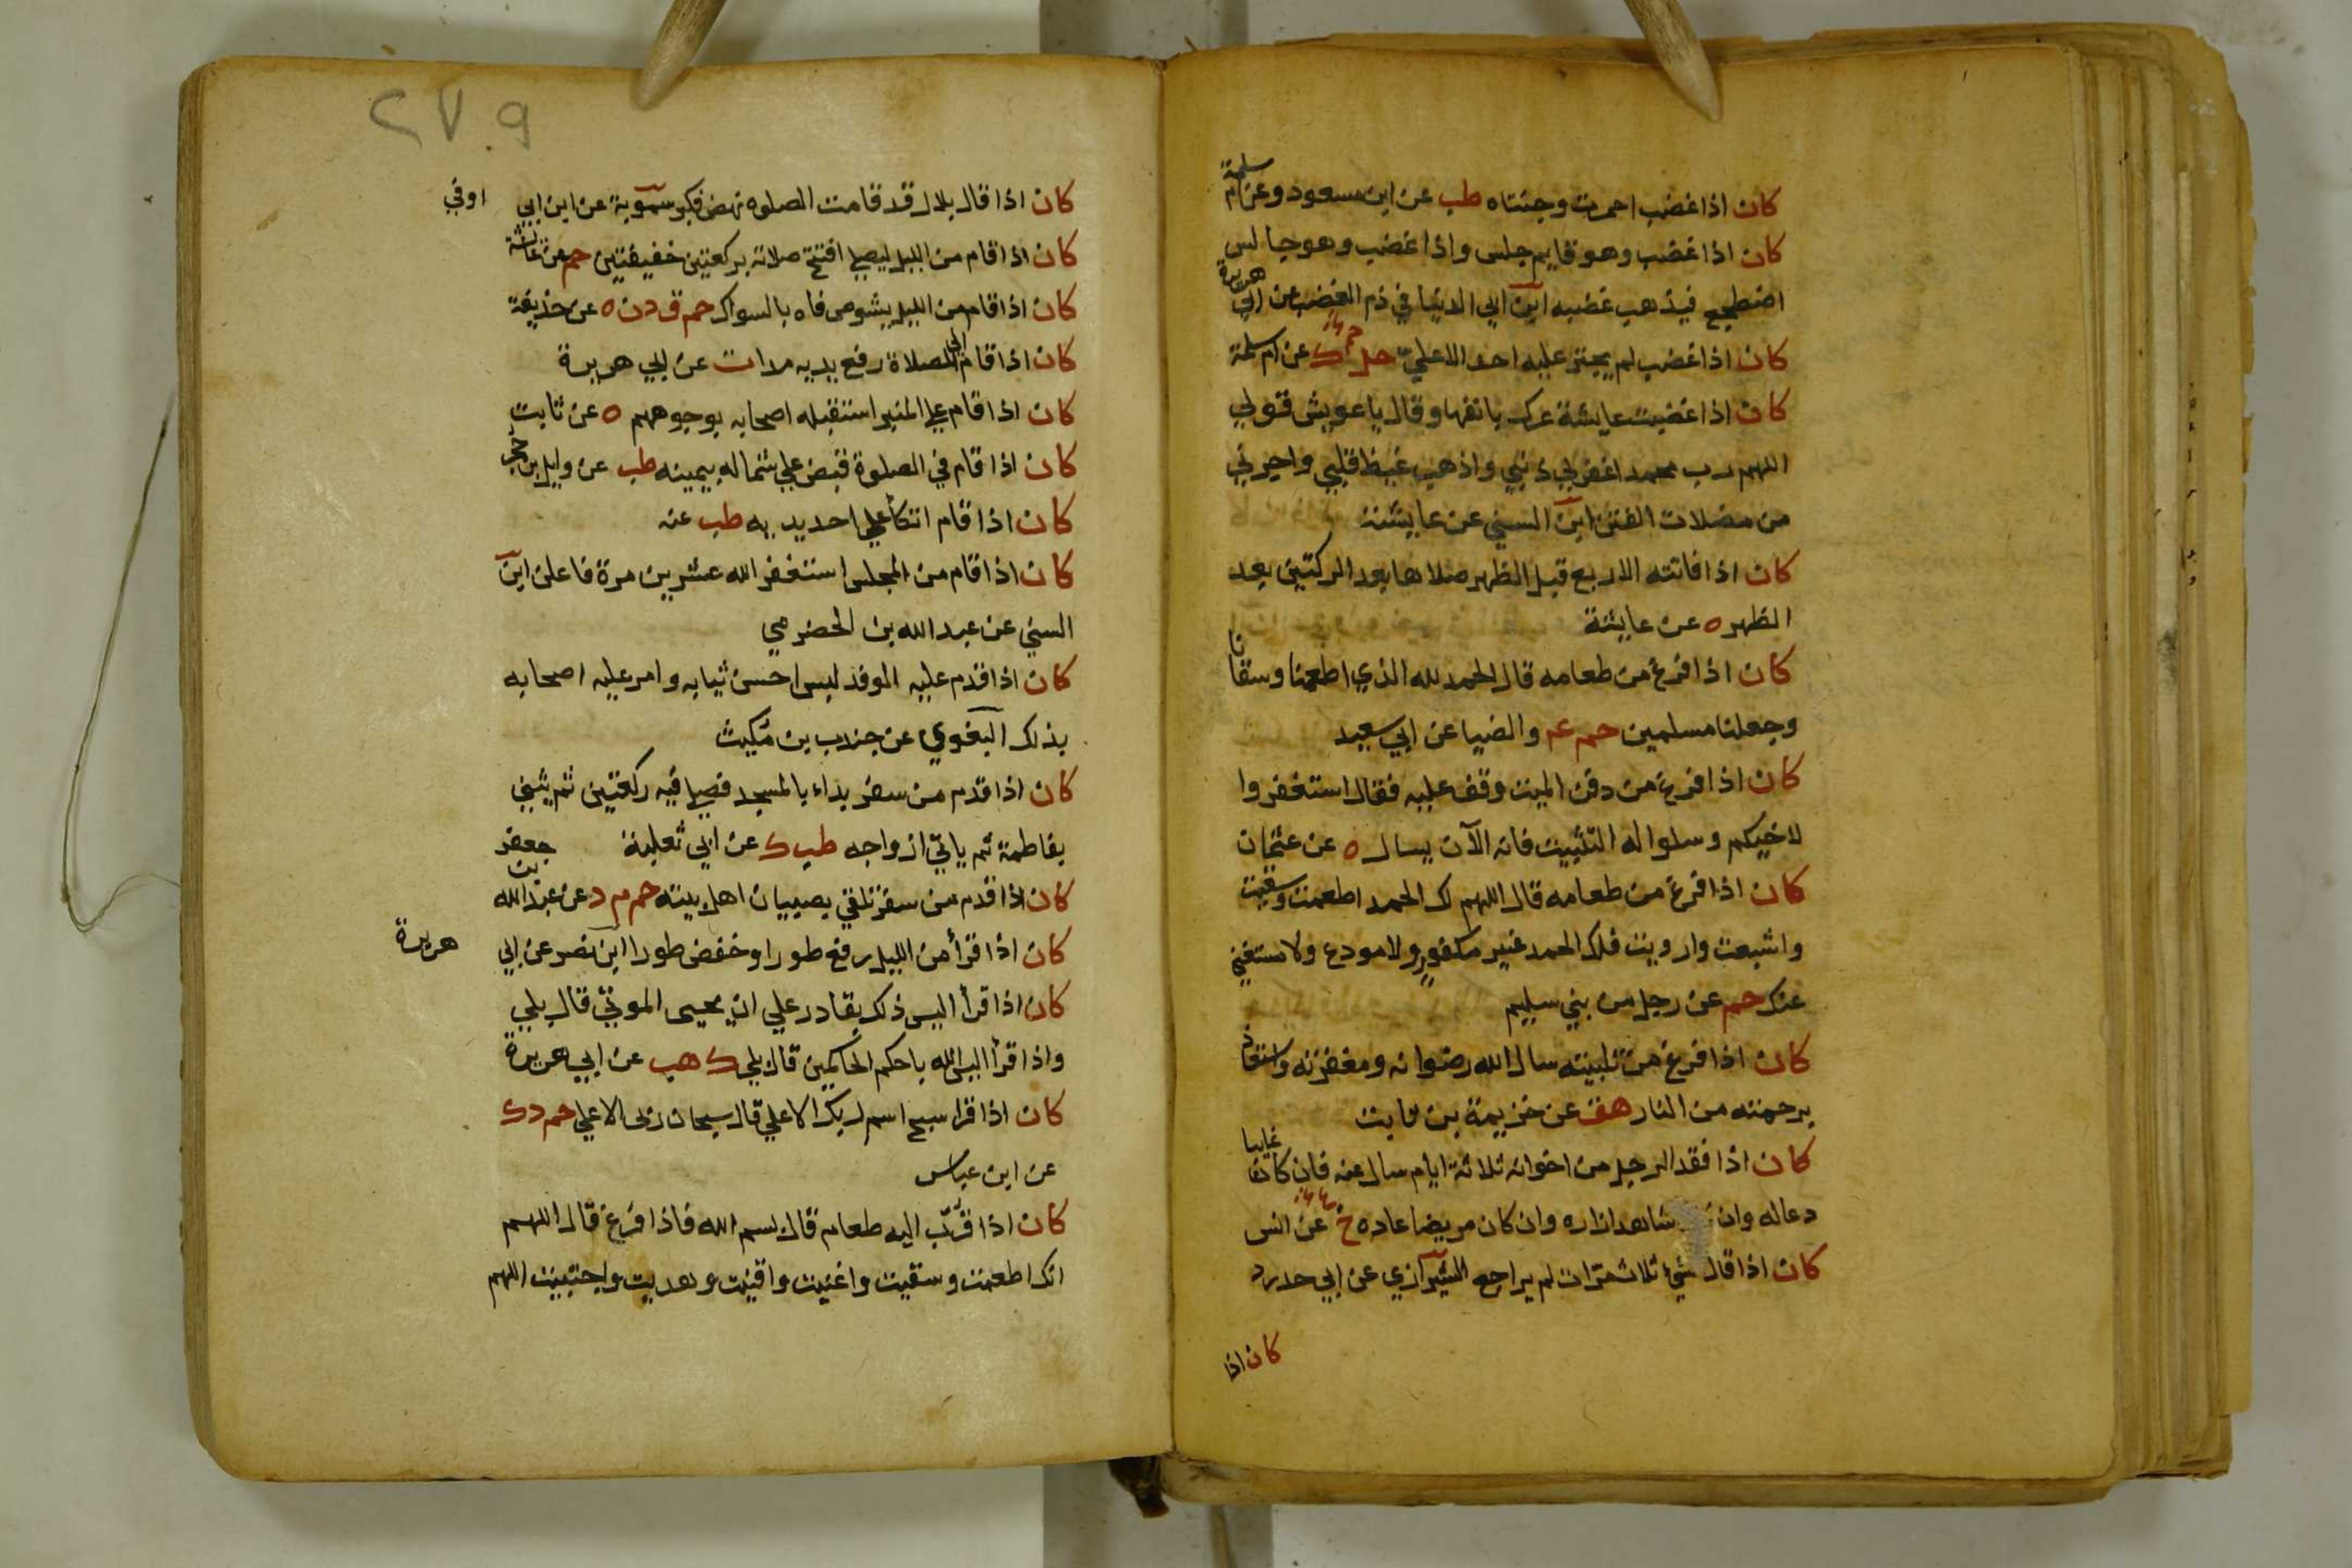 كان اذا غضب احمرت وجنتاه طب عن ابن مسعود وعن ام سلمة
كان اذا غضب وهو قايم جلس واذا غضب وهو جالس
اضطجع فيذهب غضبه ابن ابي الدنيا في ذم الغضب عن ابي هريرة
كان اذا غضب لم يجتر عليه احد الا علي حل ك عن ام سلمة
كان اذا غضبت عايشة عرك بانفها وقال يا عويش قولي
اللهم رب محمد اغفر لي ذنبي واذهب غيظ قلبي واجرني
من مضلات الفتن ابن السني عن عايشة
كان اذا فاتته الاربع قبل الظهر صلاها بعد الركتين بعد
الظهر ه عن عايشة
كان اذا فرغ من طعامه قال الحمد لله الذي اطعمنا وسقانا
وجعلنا مسلمين حم عم والضيا عن ابي سعيد
كان اذا فرغ من دفن الميت وقف عليه فقال استغفروا
لاخيكم وسلوا له التثبيت فانه الآن يسال ه عن عثمان
كان اذا فرغ من طعامه قال اللهم لك الحمد اطعمت وسقيت
واشبعت وارويت فلك الحمد غير مكفور ولا مودع ولا مستغني
عنك حم عن رجل من بني سليم
كان اذا فرغ من تلبيته سال الله رضوانه ومغفرته واستعاذ
برحمته من النار هق عن خزيمة بن ثابت
كان اذا فقد الرجل من اخوانه ثلاثة ايام سال عنه فان كان غايبا
دعا له وان شاهدا زاره وان كان مريضا عاده ع عن انس
كان اذا قال شيء ثلاث مرات لم يراجع الشيرازي عن ابي حدرد
كان اذا
٢٧٠٩
كان اذا قال بلال قد قامت الصلوه نهض فكبر سموية عن ابن ابي اوفي
كان اذا قام من الليل ليصلي افتتح صلاته بركعتين خفيفتين حم عن عائشة
كان اذا قام من الليل يشوص فاه بالسواك حم ق د ن ه عن حذيفة
كان اذا قام الي الصلاة رفع يديه مدا ت عن ابي هريرة
كان اذا قام علي المنبر استقبله اصحابه بوجوههم ه عن ثابت
كان اذا قام في الصلوة قبض علي شماله بيمينه طب عن وايل بن حجر
كان اذا قام اتكأ علي احد يديه طب عنه
كان اذا قام من المجلس استغفر الله عشرين مرة فاعلن ابن
السني عن عبد الله بن الحضرمي
كان اذا قدم عليه الوفد لبس احسن ثيابه وامر عليه اصحابه
بذلك البغوي عن جندب بن مكيث
كان اذا قدم من سفر بداء بالمسجد فصلي فيه ركعتين ثم يثني
بفاطمة ثم ياتي ازواجه طب ك عن ابي ثعلبة
كان اذا قدم من سفر تلقي بصبيان اهل بيته حم م د عن عبد الله بن جعفر
كان اذا قرأ من الليل رفع طورا وخفض طورا ابن نصر عن ابي هريرة
كان اذا قرأ اليس ذلك بقادر علي ان يحيي الموتي قال بلي
واذا قرأ اليس الله باحكم الحاكمين قال بلي ك هب عن ابي هريرة
كان اذا قرا سبح اسم ربك الاعلي قال سبحان ربي الاعلي حم د ك
عن ابن عباس
كان اذا قرب اليه طعام قال بسم الله فاذا فرغ قال اللهم
انك اطعمت وسقيت واغنيت واقنيت وهديت واجتبيت اللهم